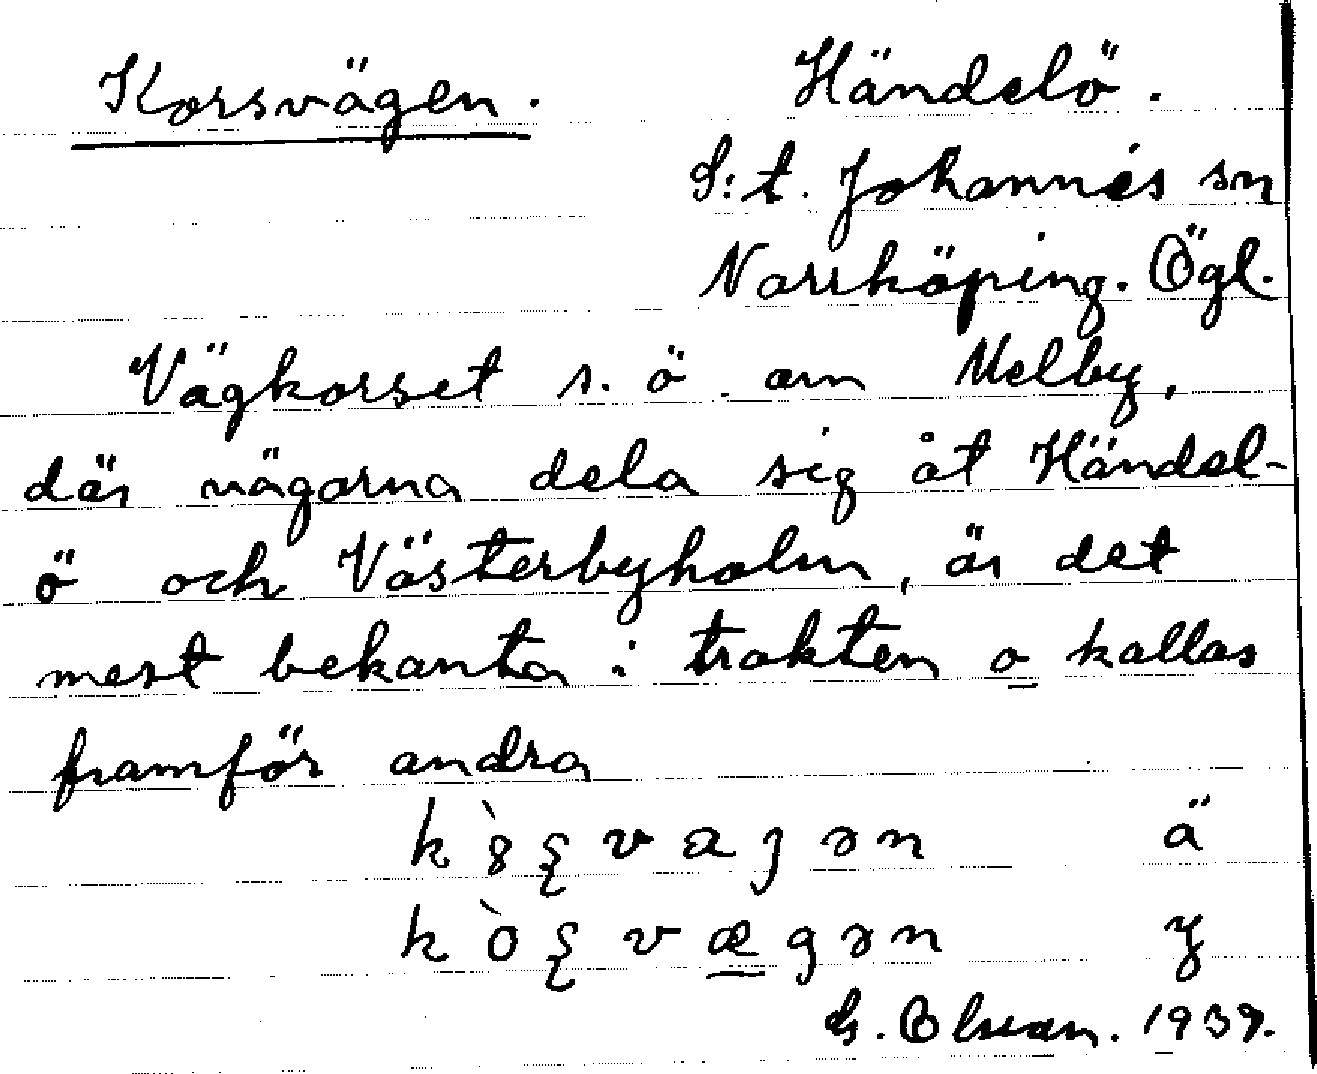 Korsvägen. Händelö.
S:t. Johannes sn
Norrköping. Ögl.
Vägkorset s. ö om Melby,
där vägarna dela sig åt Händel-
ö och Västerbyholm, är det
mest bekanta i trakten o kallas
framför andra
ä
y
G. Olsson. 1939.